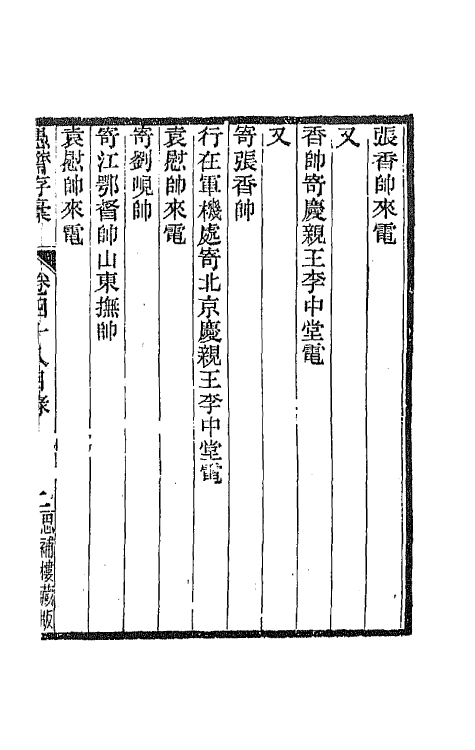 張香帥來電
又
香帥寄慶親王李中堂電
又
寄張香帥
行在軍機處寄北京慶親王李中堂電
袁慰帥來電
寄劉峴帥
寄江鄂督帥山東撫帥
袁慰帥來電
愚齋存稾
卷四十八目錄
二
思補樓藏版